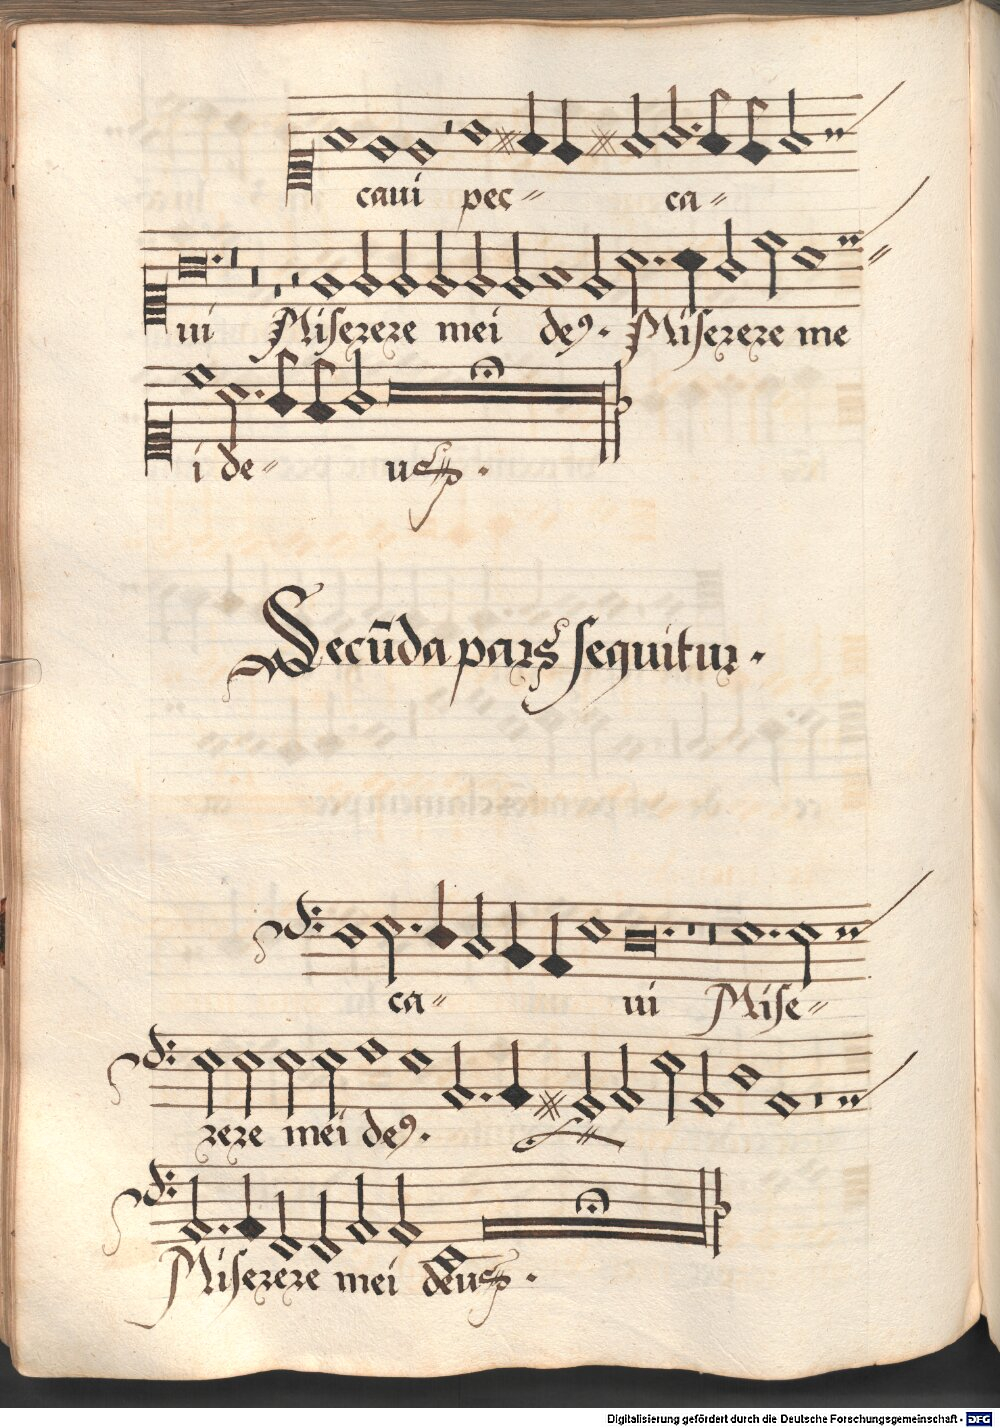 caui pec⸗ ca⸗
ui Miserere mei de9. Miserere me
i de⸗ us.
Secūda pars sequitur.
ca⸗ ui Mise⸗
rere mei de9.
Miserere mei deus.
Digitalisierung gefördert durch die Deutsche Forschungsgemeinschaft - DFG